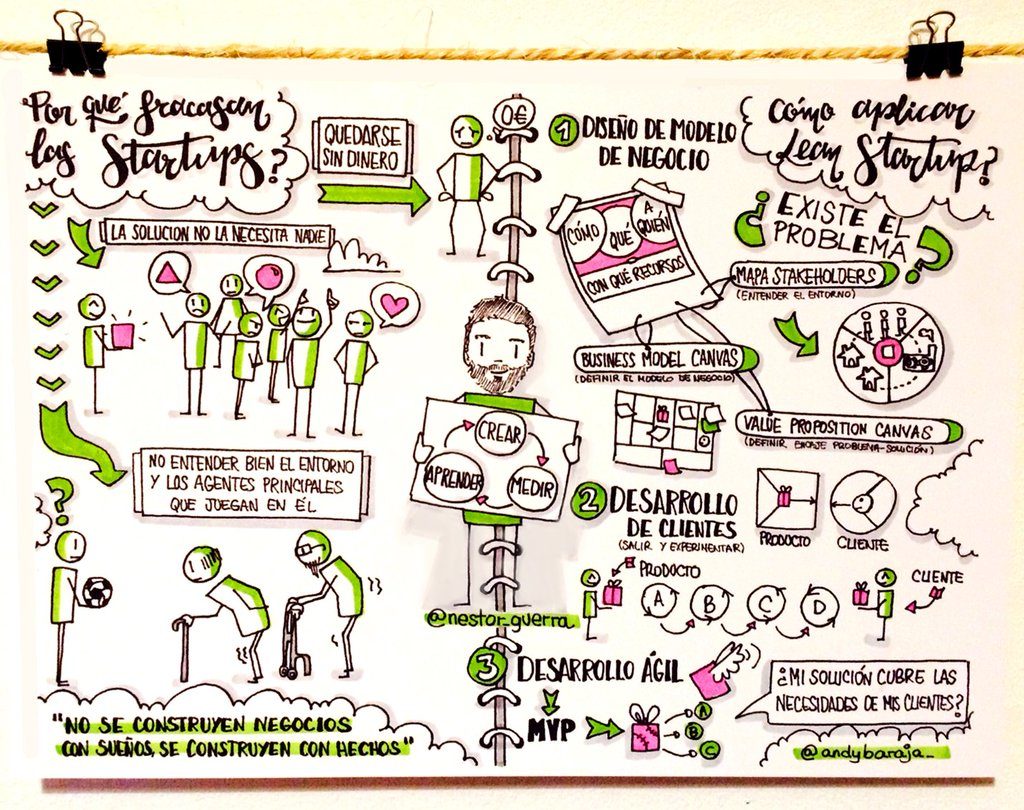 Por qué fracasan
las Startups?
QUEDARSE
SIN DINERO
0€
LA SOLUCION NO LA NECESITA NADIE
NO ENTENDER BIEN EL ENTORNO
Y LOS AGENTES PRINCIPALES
QUE JUEGAN EN ÉL
?
"NO SE CONSTRUYEN NEGOCIOS
CON SUEÑOS, SE CONSTRUYEN CON HECHOS"
CREAR
APRENDER
MEDIR
@nestor_guerra
Cómo aplicar
Lean Startup?
1 DISEÑO DE MODELO
DE NEGOCIO
CÓMO
QUÉ
A
QUIÉN
CON QUÉ RECURSOS
¿EXISTE EL
PROBLEMA?
MAPA STAKEHOLDERS
(ENTENDER EL ENTORNO)
BUSINESS MODEL CANVAS
(DEFINIR EL MODELO DE NEGOCIO)
VALUE PROPOSITION CANVAS
(DEFINIR ENCAJE PROBLEMA-SOLUCIÓN)
PRODUCTO
CLIENTE
2 DESARROLLO
DE CLIENTES
(SALIR Y EXPERIMENTAR)
PRODUCTO
A
B
C
D
CLIENTE
3 DESARROLLO ÁGIL
MVP
A
B
C
¿MI SOLUCIÓN CUBRE LAS
NECESIDADES DE MIS CLIENTES?
@andybaraja_